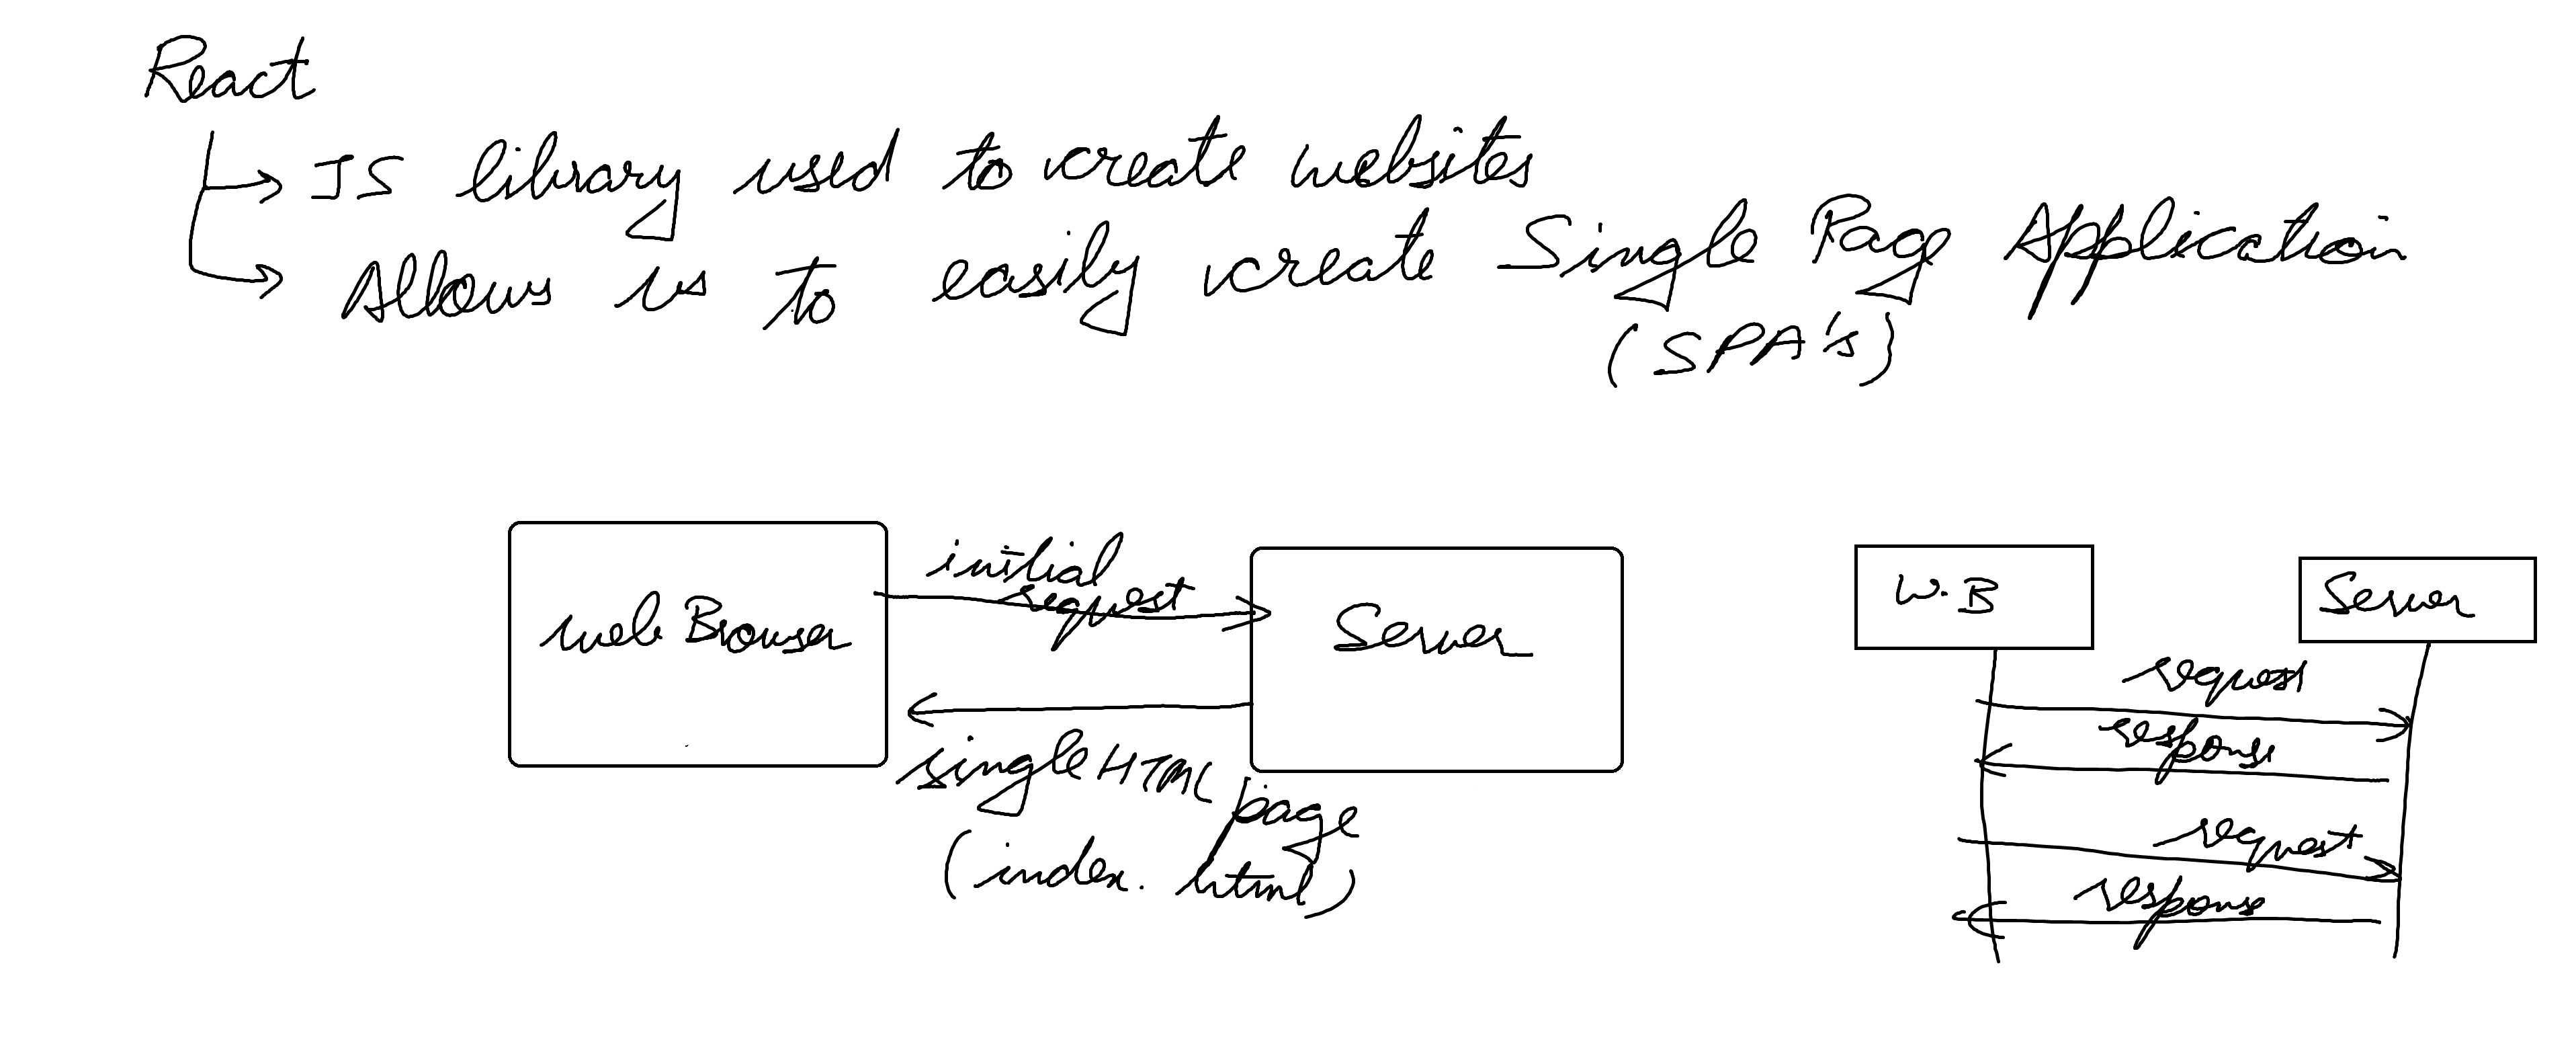 React
JS library used to create websites
Allows us to easily create Single Page Application
(SPA's)
web Browser
initial
request
Server
single HTML page
(index.html)
W.B
Server
request
response
request
response